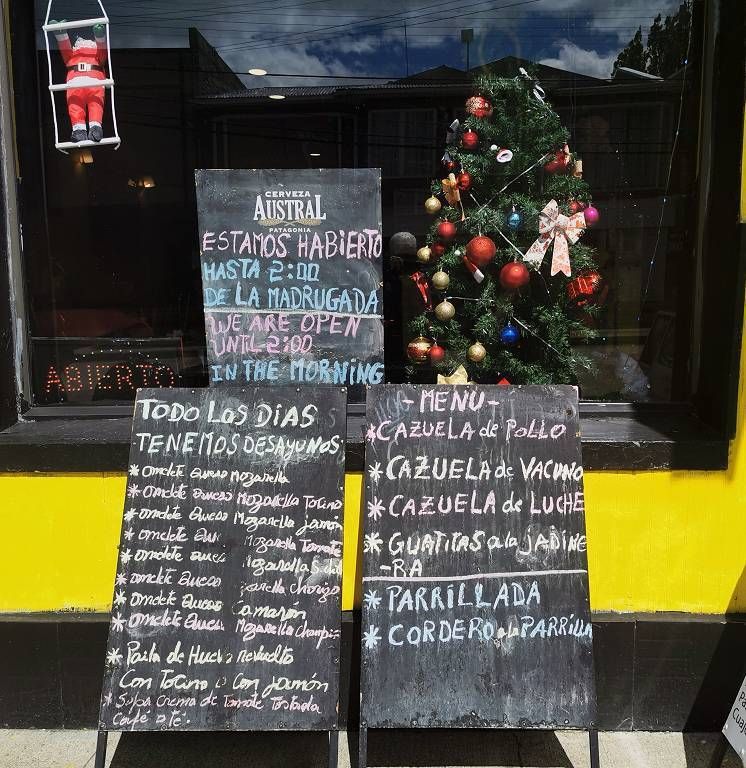 CERVEZA
AUSTRAL
PATAGONIA
ESTAMOS HABIERTO
HASTA 2:00
DE LA MADRUGADA
WE ARE OPEN
UNTIL 2:00
IN THE MORNING
ABIERTO
TODO LOS DIAS
TENEMOS DESAYUNOS
* omelete Queso Mozarella
* omelete Queso Mozarella Tocino
* omelete Queso Mozarella jamón
* omelete Queso Mozarella Tomate
* omelete Queso
* omelete Queso Chorizo
* omelete Queso Camarón
* omelete Queso Mozarella Champi
* Paila de Huevo revuelto
Con Tocino o Con jamón
* Sopa Crema de Tomate Tostada
Café o té.
-MENU-
*CAZUELA de POLLO
*CAZUELA de VACUNO
*CAZUELA de LUCHE
*GUATITAS a la JADINE
-RA
*PARRILLADA
*CORDERO a la PARRILLA